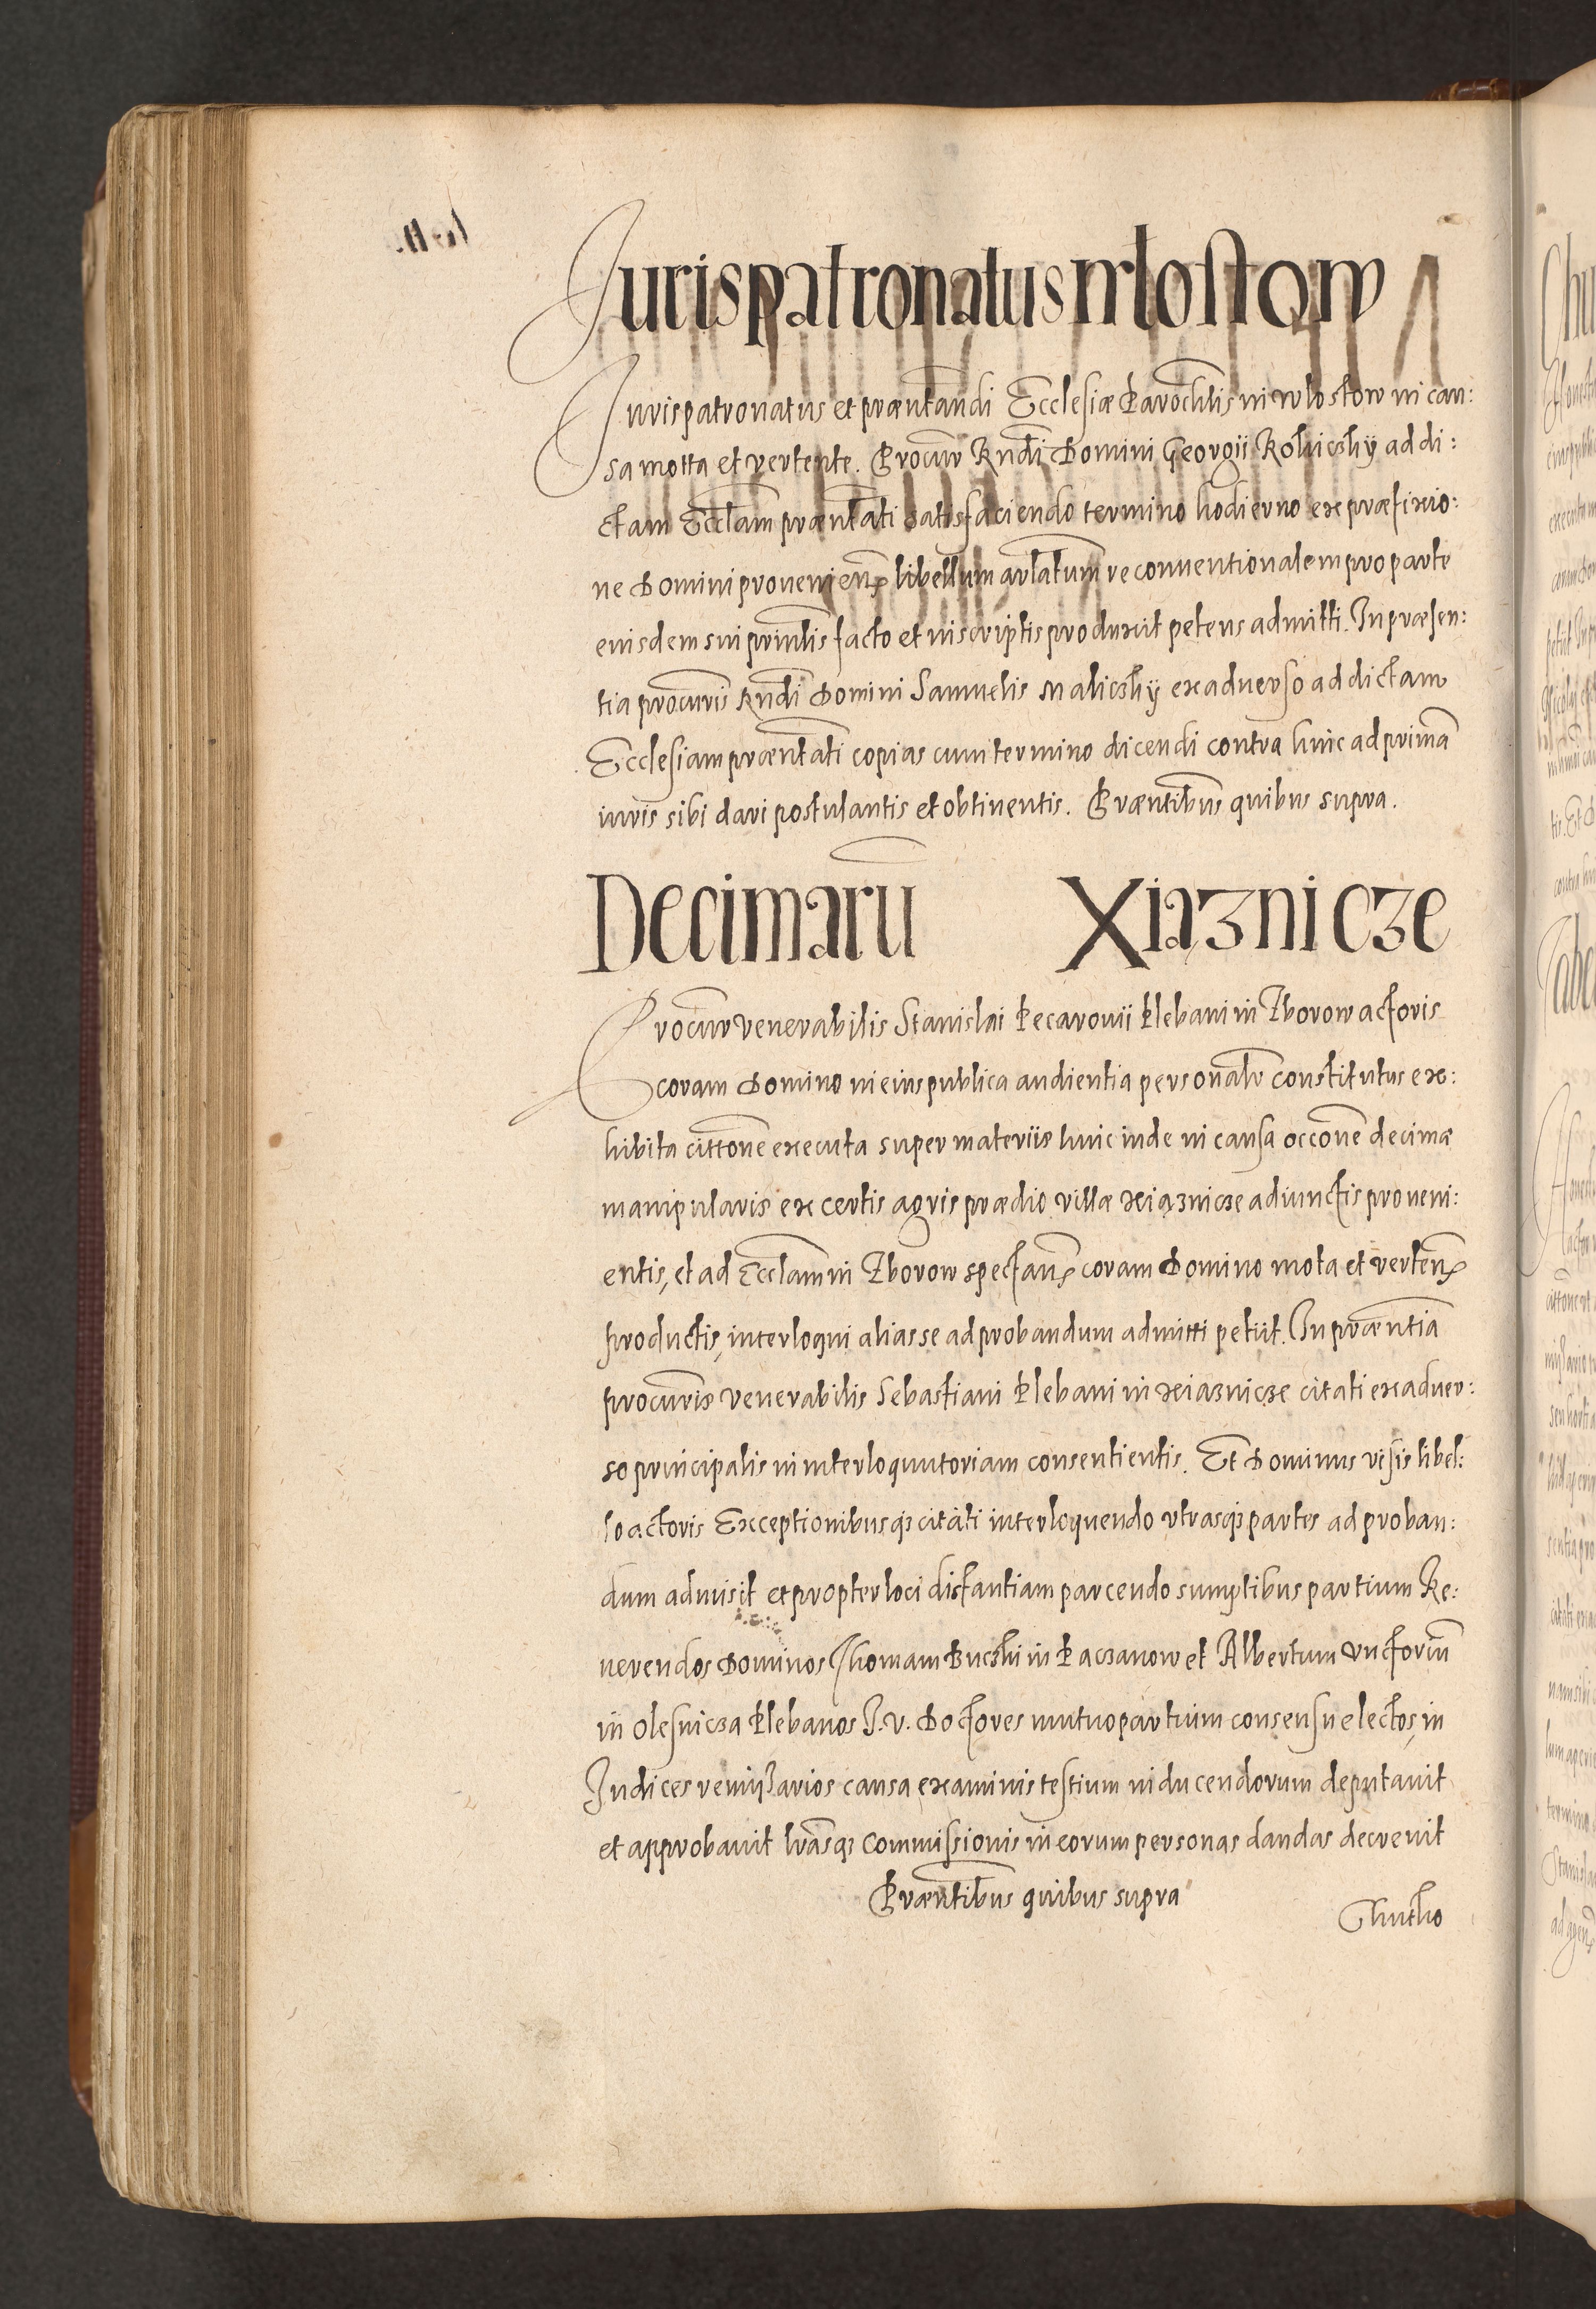 Jurispatronatus Wlostow
Jurispatronatus et præntandi Ecclesiæ Parochlis in Wlostow in cau:
sa motta et vertente. Procur Rndi Domini Georgii Rokiczky ad di:
ctam Ecclam præntati satisfaciendo termino hodierno ex præfixio:
ne Domini provenien libellum artlatum reconventionalem pro parte
eiusdem sui prinlis facto et in scriptis produxit petens admitti. In præsen:
tia procuris Rndi Domini Samuelis Maliczky ex adverso ad dictam
Ecclesiam præntati copias cum termino dicendi contra huic ad primã
iuris sibi dari postulantis et obtinentis. Præntibus quibus supra.
Decimarũ Xiaznicze
Procur venerabilis Stanislai Pecarovii Plebani in Zborow actoris
coram Domino in eius publica audientia personalr constitutus ex:
hibita cittone executa super materiis huic inde in causa occone decimæ
manipularis ex certis agris prædio villæ Xiąznicze adiunctis proveni:
entis, et ad Ecclam in Zborow spectan coram Domino mota et verten
productis, interloqui alias se ad probandum admitti petiit. In præntia
procuris venerabilis Sebastiani Plebani in Xiaznicze citati ex adver:
so principalis in interloquutoriam consentientis. Et Dominus visis libel:
lo actoris Exceptionibusq citati interloquendo utrasq partes ad proban:
dum admisit et propter loci distantiam parcendo sumptibus partium Re:
verendos Dominos Thomam Buczki in Paczanow et Albertum Unctoriũ
in Olesnicza Plebanos J. V. Doctores mutuo partium consensu electos, in
Judices remissarios causa examinis testium inducendorum deputavit
et approbavit lrasq Commissionis in eorum personas dandas decrevit
Præntibus quibus supra